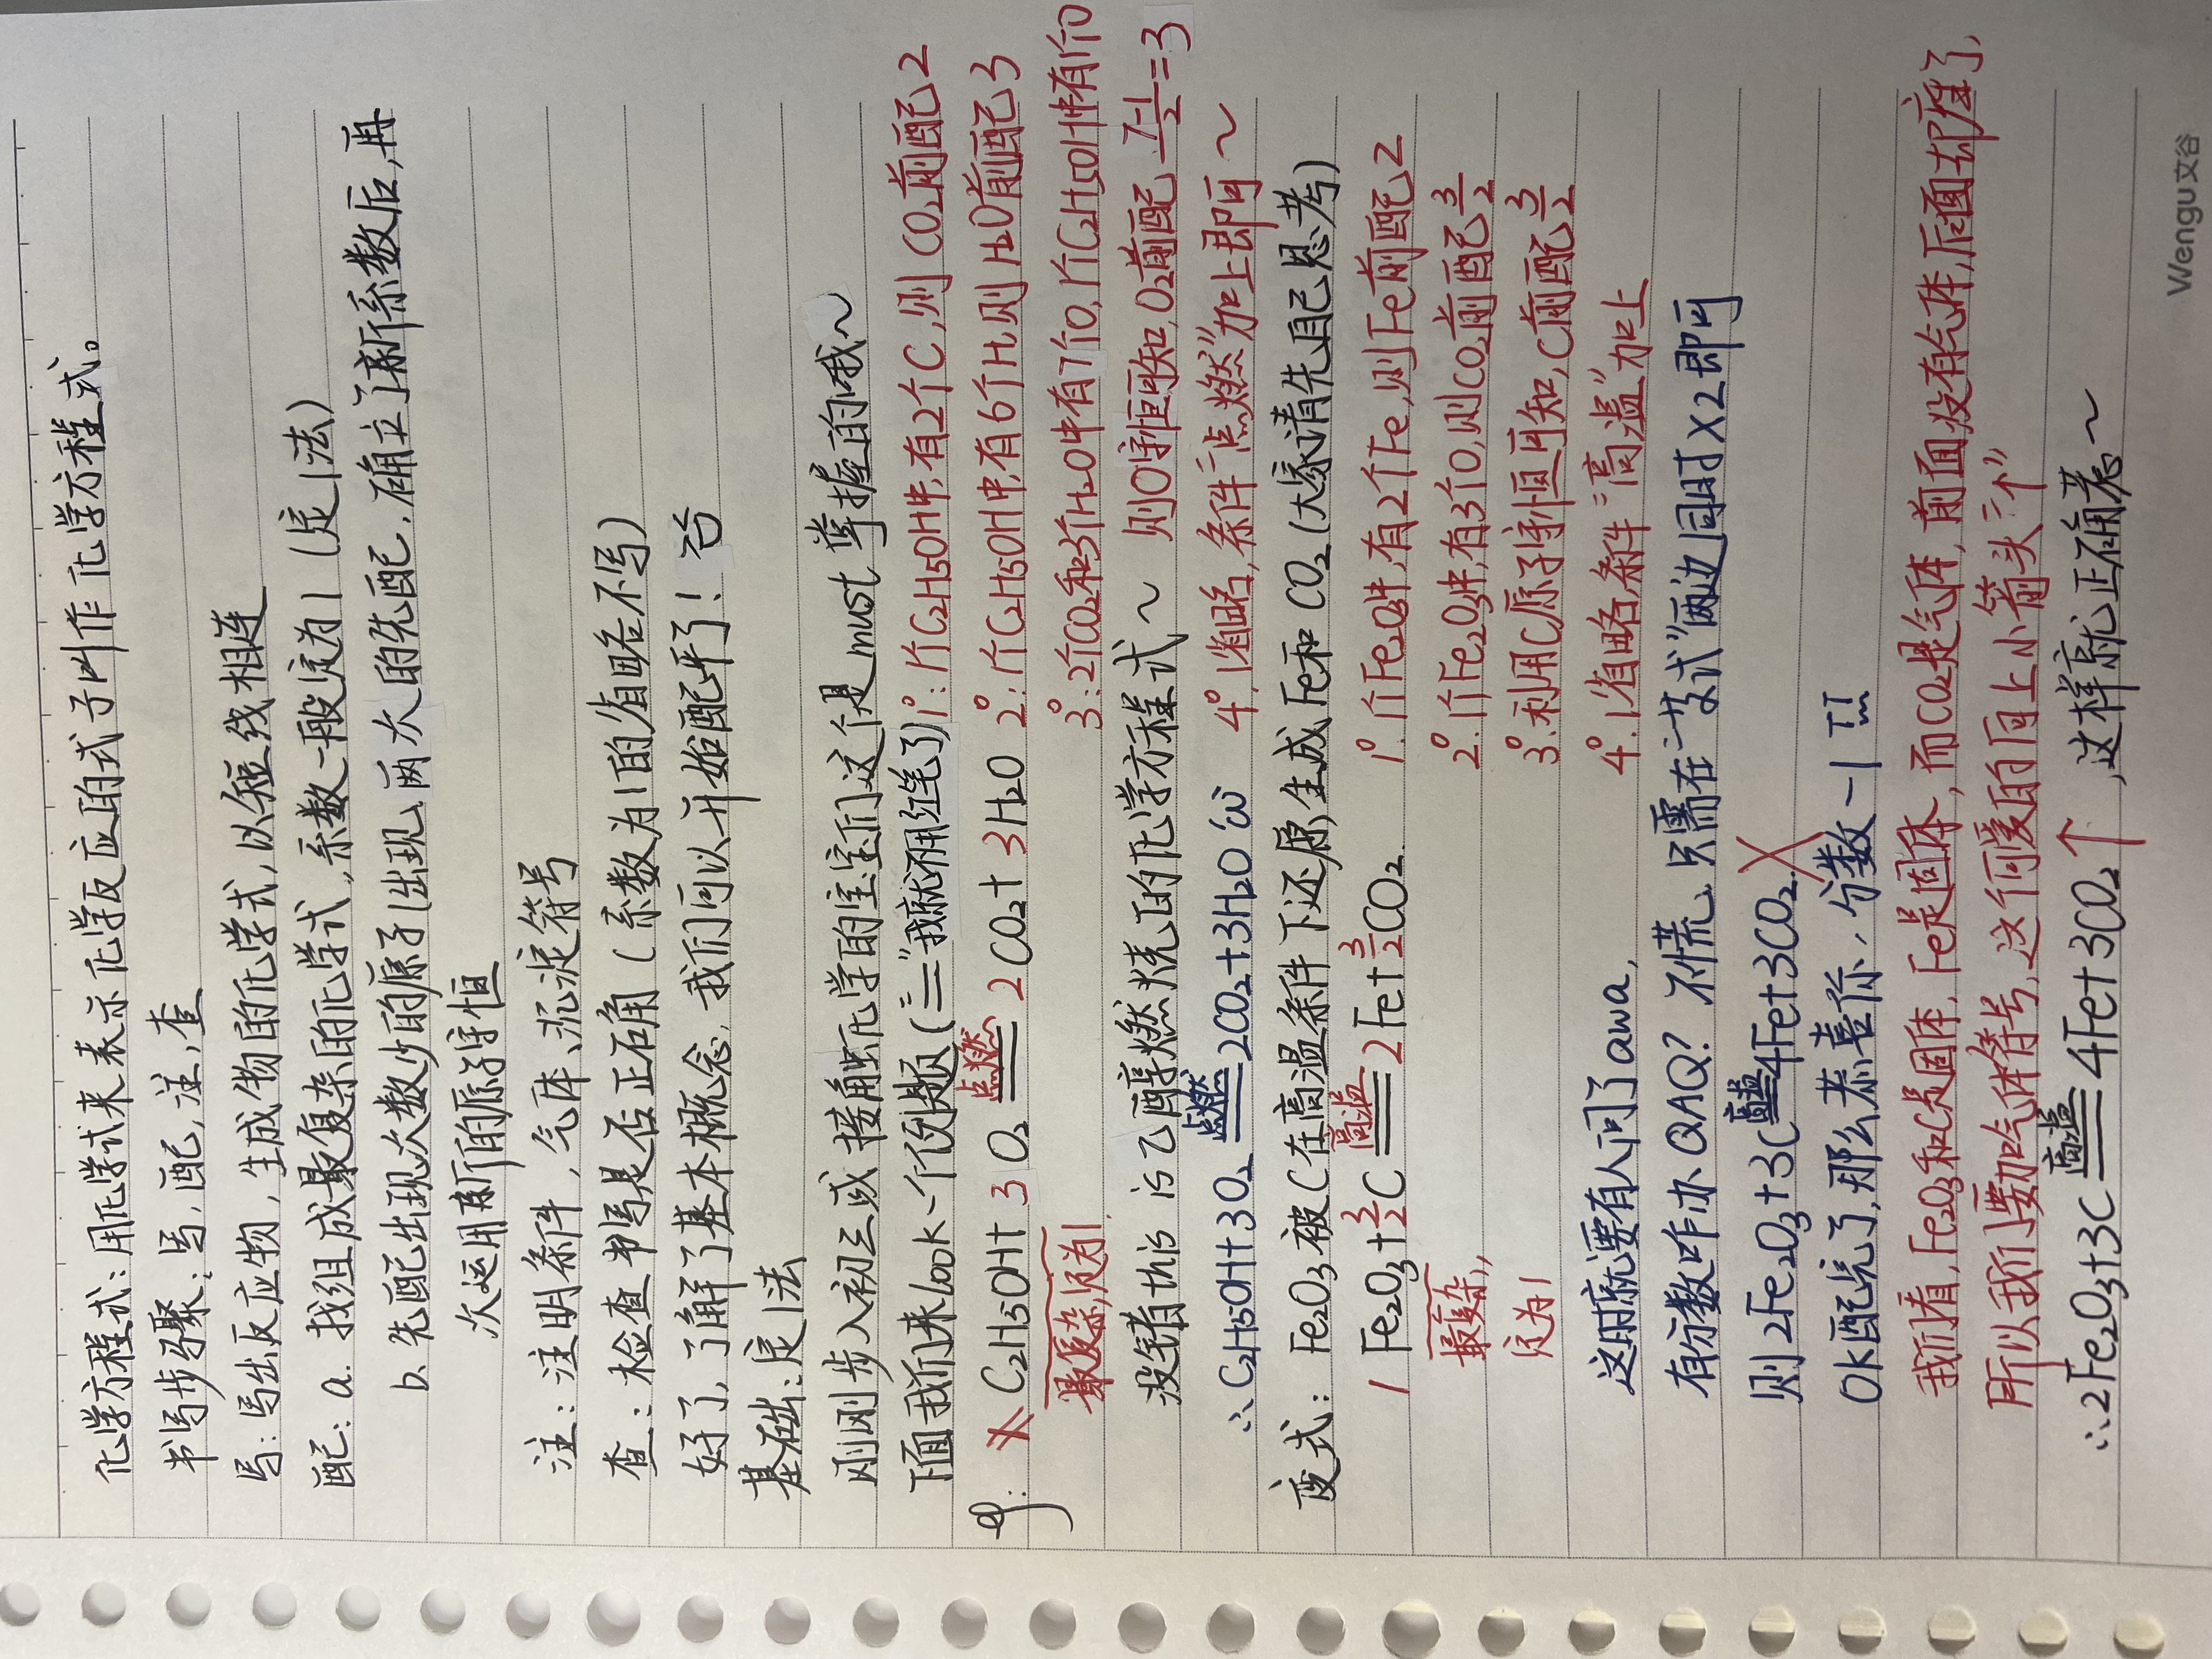 化学方程式:用化学式来表示化学反应的式子叫作化学方程式。
书写步骤:写,配,注,查
写:写出反应物,生成物的化学式,以短线相连
配:a. 找组成最复杂的化学式,系数一般定为1(定1法)
b. 先配出现次数少的原子(出现两次的先配,确立了新系数后,再
次运用新的原子守恒
注:注明条件,气体、沉淀符号
查:检查书写是否正确(系数为1的省略不写)
好了,了解了基本概念,我们可以开始配平了!
基础:定1法
刚刚步入初三或接触化学的宝宝们这个是must掌握的哦~
下面我们来look一个例题(三"我就不用红笔了)
eg: C2H5OH+3O2 点燃 2CO2+3H2O
最复杂,定为1
1°:1个C2H5OH中,有2个C,则CO2前配2
2°:1个C2H5OH中,有6个H,则H2O前配3
3°:2个CO2和3个H2O中有7个O,1个C2H5OH中有1个O
则O守恒可知,O2前配 7-1/2=3
没错this is 乙醇燃烧的化学方程式~
4°,省略1,条件"点燃"加上即可~
∴C2H5OH+3O2 点燃 2CO2+3H2O
变式:Fe2O3被C在高温条件下还原,生成Fe和CO2(大家请先自己思考)
1 Fe2O3+3/2C 高温 2Fe+3/2CO2
最复杂,
定为1
1°:1个Fe2O3中,有2个Fe,则Fe前配2
2°:1个Fe2O3中,有3个O,则CO2前配3/2
3°:利用C原子守恒可知,C前配3/2
4°:1省略,条件"高温"加上
这时就要有人问了awa,
有分数咋办QAQ?不慌,只需在"等式"两边同时×2即可
则2Fe2O3+3C 高温 4Fe+3CO2 ×
OK配完了,那么恭喜你,分数-1
我们看,Fe2O3和C是固体,Fe是固体,而CO2是气体,前面没有气体,后面却产生了,
所以我们要加气体符号,这个可爱的向上小箭头"个"
∴2Fe2O3+3C 高温 4Fe+3CO2↑,这样就正确惹~
Wengu文谷